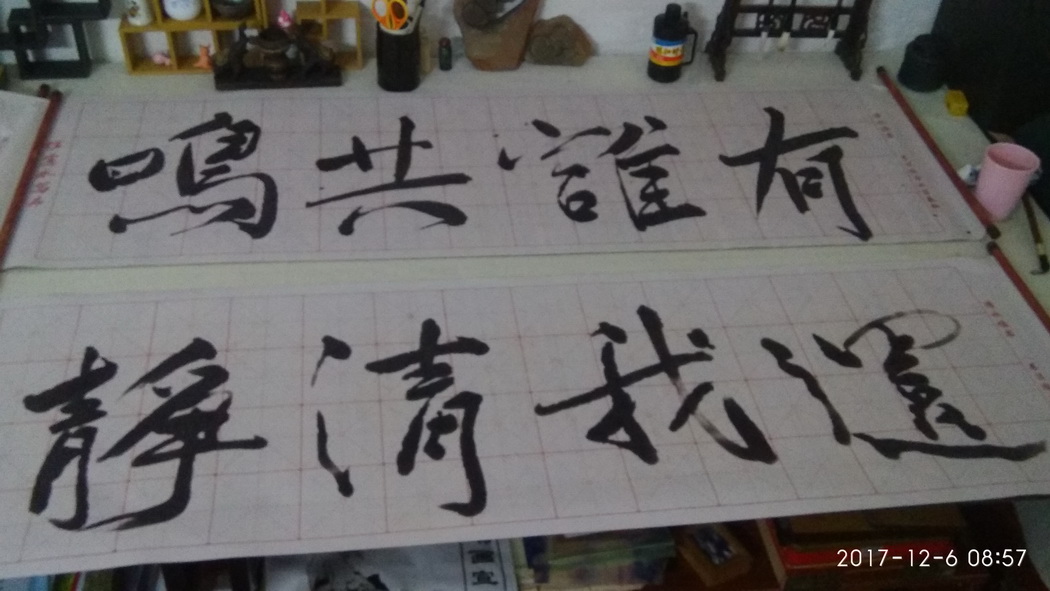 有誰共鳴
還我清靜
宣
2017-12-6 08:57